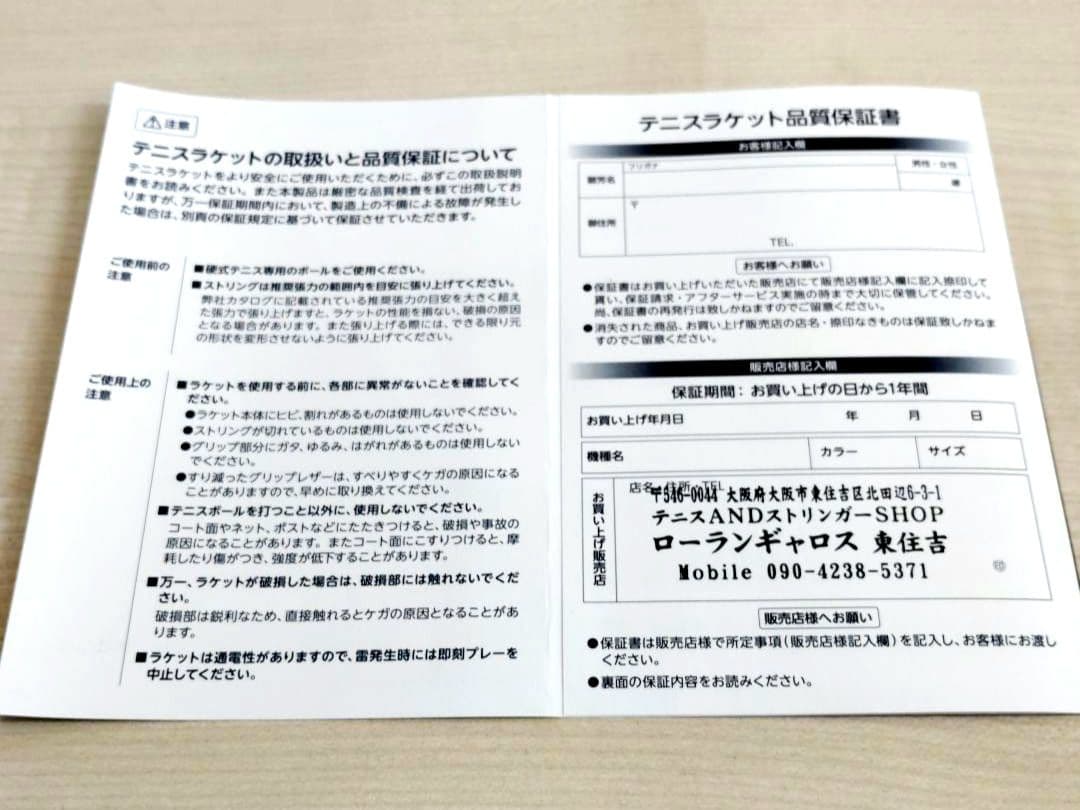 注意
テニスラケットの取扱いと品質保証について
テニスラケットをより安全にご使用いただくために、必ずこの取扱説明
書をお読みください。また本製品は厳密な品質検査を経て出荷してお
りますが、万一保証期間内において、製造上の不備による故障が発生し
た場合は、別頁の保証規定に基づいて保証させていただきます。
ご使用前の
注意
■硬式テニス専用のボールをご使用ください。
■ストリングは推奨張力の範囲内を目安に張り上げてください。
弊社カタログに記載されている推奨張力の目安を大きく超え
た張力で張り上げますと、ラケットの性能を損ない、破損の原因
となる場合があります。また張り上げる際には、できる限り元
の形状を変形させないように張り上げてください。
ご使用上の
注意
■ラケットを使用する前に、各部に異常がないことを確認してく
ださい。
●ラケット本体にヒビ、割れがあるものは使用しないでください。
●ストリングが切れているものは使用しないでください。
●グリップ部分にガタ、ゆるみ、はがれがあるものは使用しない
でください。
●すり減ったグリップレザーは、すべりやすくケガの原因になる
ことがありますので、早めに取り換えてください。
■テニスボールを打つこと以外に、使用しないでください。
コート面やネット、ポストなどにたたきつけると、破損や事故の
原因になることがあります。またコート面にこすりつけると、摩
耗したり傷がつき、強度が低下することがあります。
■万一、ラケットが破損した場合は、破損部には触れないでくだ
さい。
破損部は鋭利なため、直接触れるとケガの原因となることがあ
ります。
■ラケットは通電性がありますので、雷発生時には即刻プレーを
中止してください。
テニスラケット品質保証書
お客様記入欄
フリガナ
男性・女性
御芳名
歳
御住所
〒
TEL.
お客様へお願い
●保証書はお買い上げいただいた販売店にて販売店様記入欄に記入捺印して
貰い、保証請求・アフターサービス実施の時まで大切に保管してください。
尚、保証書の再発行は致しかねますのでご留意ください。
●消失された商品、お買い上げ販売店の店名・捺印なきものは保証致しかねま
すのでご留意ください。
販売店様記入欄
保証期間：お買い上げの日から1年間
お買い上げ年月日 年 月 日
機種名 カラー サイズ
お買い上げ販売店
店名・住所・TEL
〒546-0044 大阪府大阪市東住吉区北田辺6-3-1
テニスANDストリンガーSHOP
ローランギャロス 東住吉
Mobile 090-4238-5371
印
販売店様へお願い
●保証書は販売店様で所定事項(販売店様記入欄)を記入し、お客様にお渡し
ください。
●裏面の保証内容をお読みください。